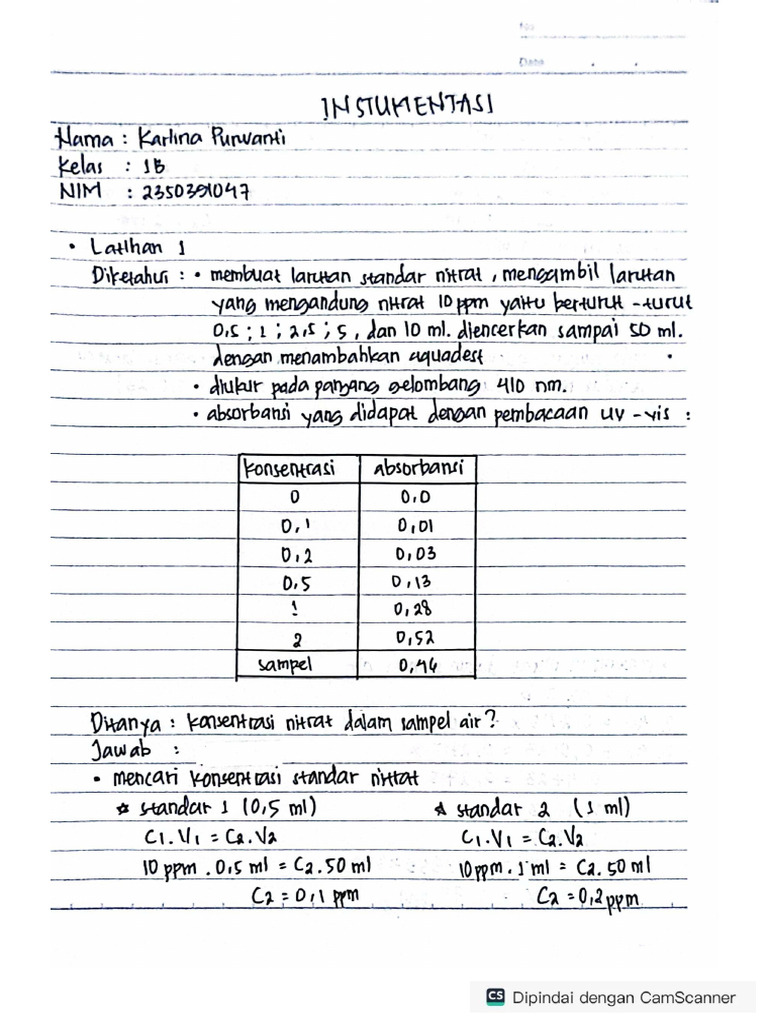 No
Date
INSTUMENTASI
Nama : Karlina Purwanti
Kelas : 1B
NIM : 2350391047
• Latihan 1
Diketahui : • membuat larutan standar nitrat, mengambil larutan
yang mengandung nitrat 10 ppm yaitu berturut - turut
0,5 ; 1 ; 2,5 ; 5, dan 10 ml. diencerkan sampai 50 ml.
dengan menambahkan aquadest
• diukur pada panjang gelombang 410 nm.
• absorbansi yang didapat dengan pembacaan uv - vis :
konsentrasi absorbansi
0 0,0
0,1 0,01
0,2 0,03
0,5 0,13
1 0,28
2 0,52
sampel 0,46
Ditanya : konsentrasi nitrat dalam sampel air ?
Jawab :
• mencari konsentrasi standar nitrat
* standar 1 (0,5 ml) * standar 2 (1 ml)
C1.V1 = C2.V2 C1.V1 = C2.V2
10 ppm . 0,5 ml = C2. 50 ml 10 ppm . 1 ml = C2. 50 ml
C2 = 0,1 ppm C2 = 0,2 ppm
CS Dipindai dengan CamScanner